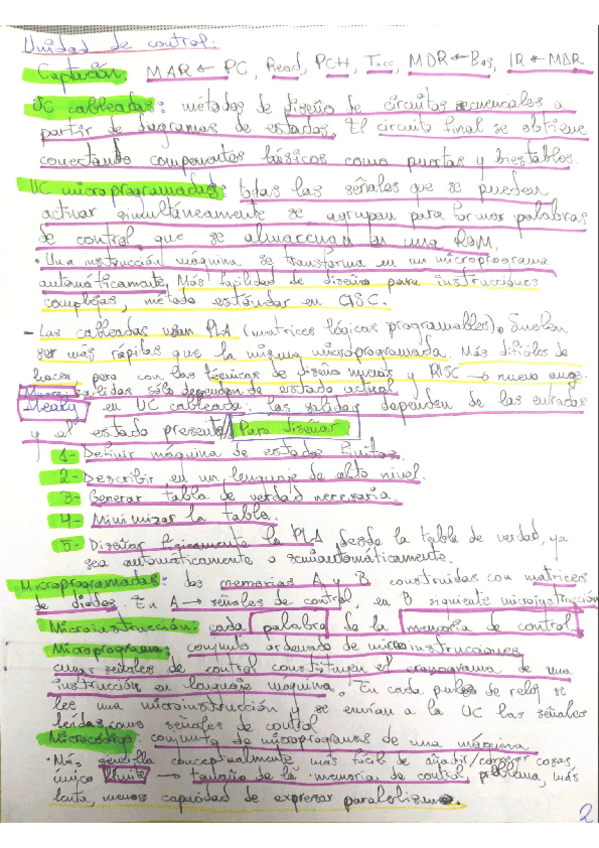 Unidad de control:
Captación: MAR ← PC, Read, PC++, Tacc, MDR ← Bus, IR ← MDR
UC cableadas: métodos de diseño de circuitos secuenciales a
partir de diagramas de estados. El circuito final se obtiene
conectando componentes básicos como puertas y biestables.
UC microprogramadas: todas las señales que se pueden
activar simultáneamente se agrupan para formar palabras
de control, que se almacenan en una ROM.
· Una instrucción máquina se transforma en un microprograma
automáticamente. Más facilidad de diseño para instrucciones
complejas, método estándar en CISC.
- Las cableadas usan PLA (matrices lógicas programables). Suelen
ser más rápidas que la misma microprogramada. Más difíciles de
hacer pero con las técnicas de diseño nuevas y RISC → nuevo auge.
Moore: salidas sólo dependen de estado actual
Mealy en UC cableada: las salidas dependen de las entradas
y el estado presente// Para diseñar
1- Definir máquina de estados finitos.
2- Describir en un lenguaje de alto nivel.
3- Generar tabla de verdad necesaria.
4- Minimizar la tabla.
5- Diseñar físicamente la PLA desde la tabla de verdad, ya
sea automáticamente o semiautomáticamente.
Microprogramadas: dos memorias A y B construidas con matrices
de diodos. En A → señales de control, en B siguiente microinstrucción
Microinstrucción: cada palabra de la memoria de control
Microprograma: conjunto ordenado de microinstrucciones
cuyas señales de control constituyen el cronograma de una
instrucción en lenguaje máquina. En cada pulso de reloj se
lee una microinstrucción y se envían a la UC las señales
leídas como señales de control
Microcódigo: conjunto de microprogramas de una máquina
· Más sencilla conceptualmente más fácil de añadir/corregir cosas,
único límite → tamaño de la memoria de control, problema, más
lenta, menos capacidad de expresar paralelismo.
2